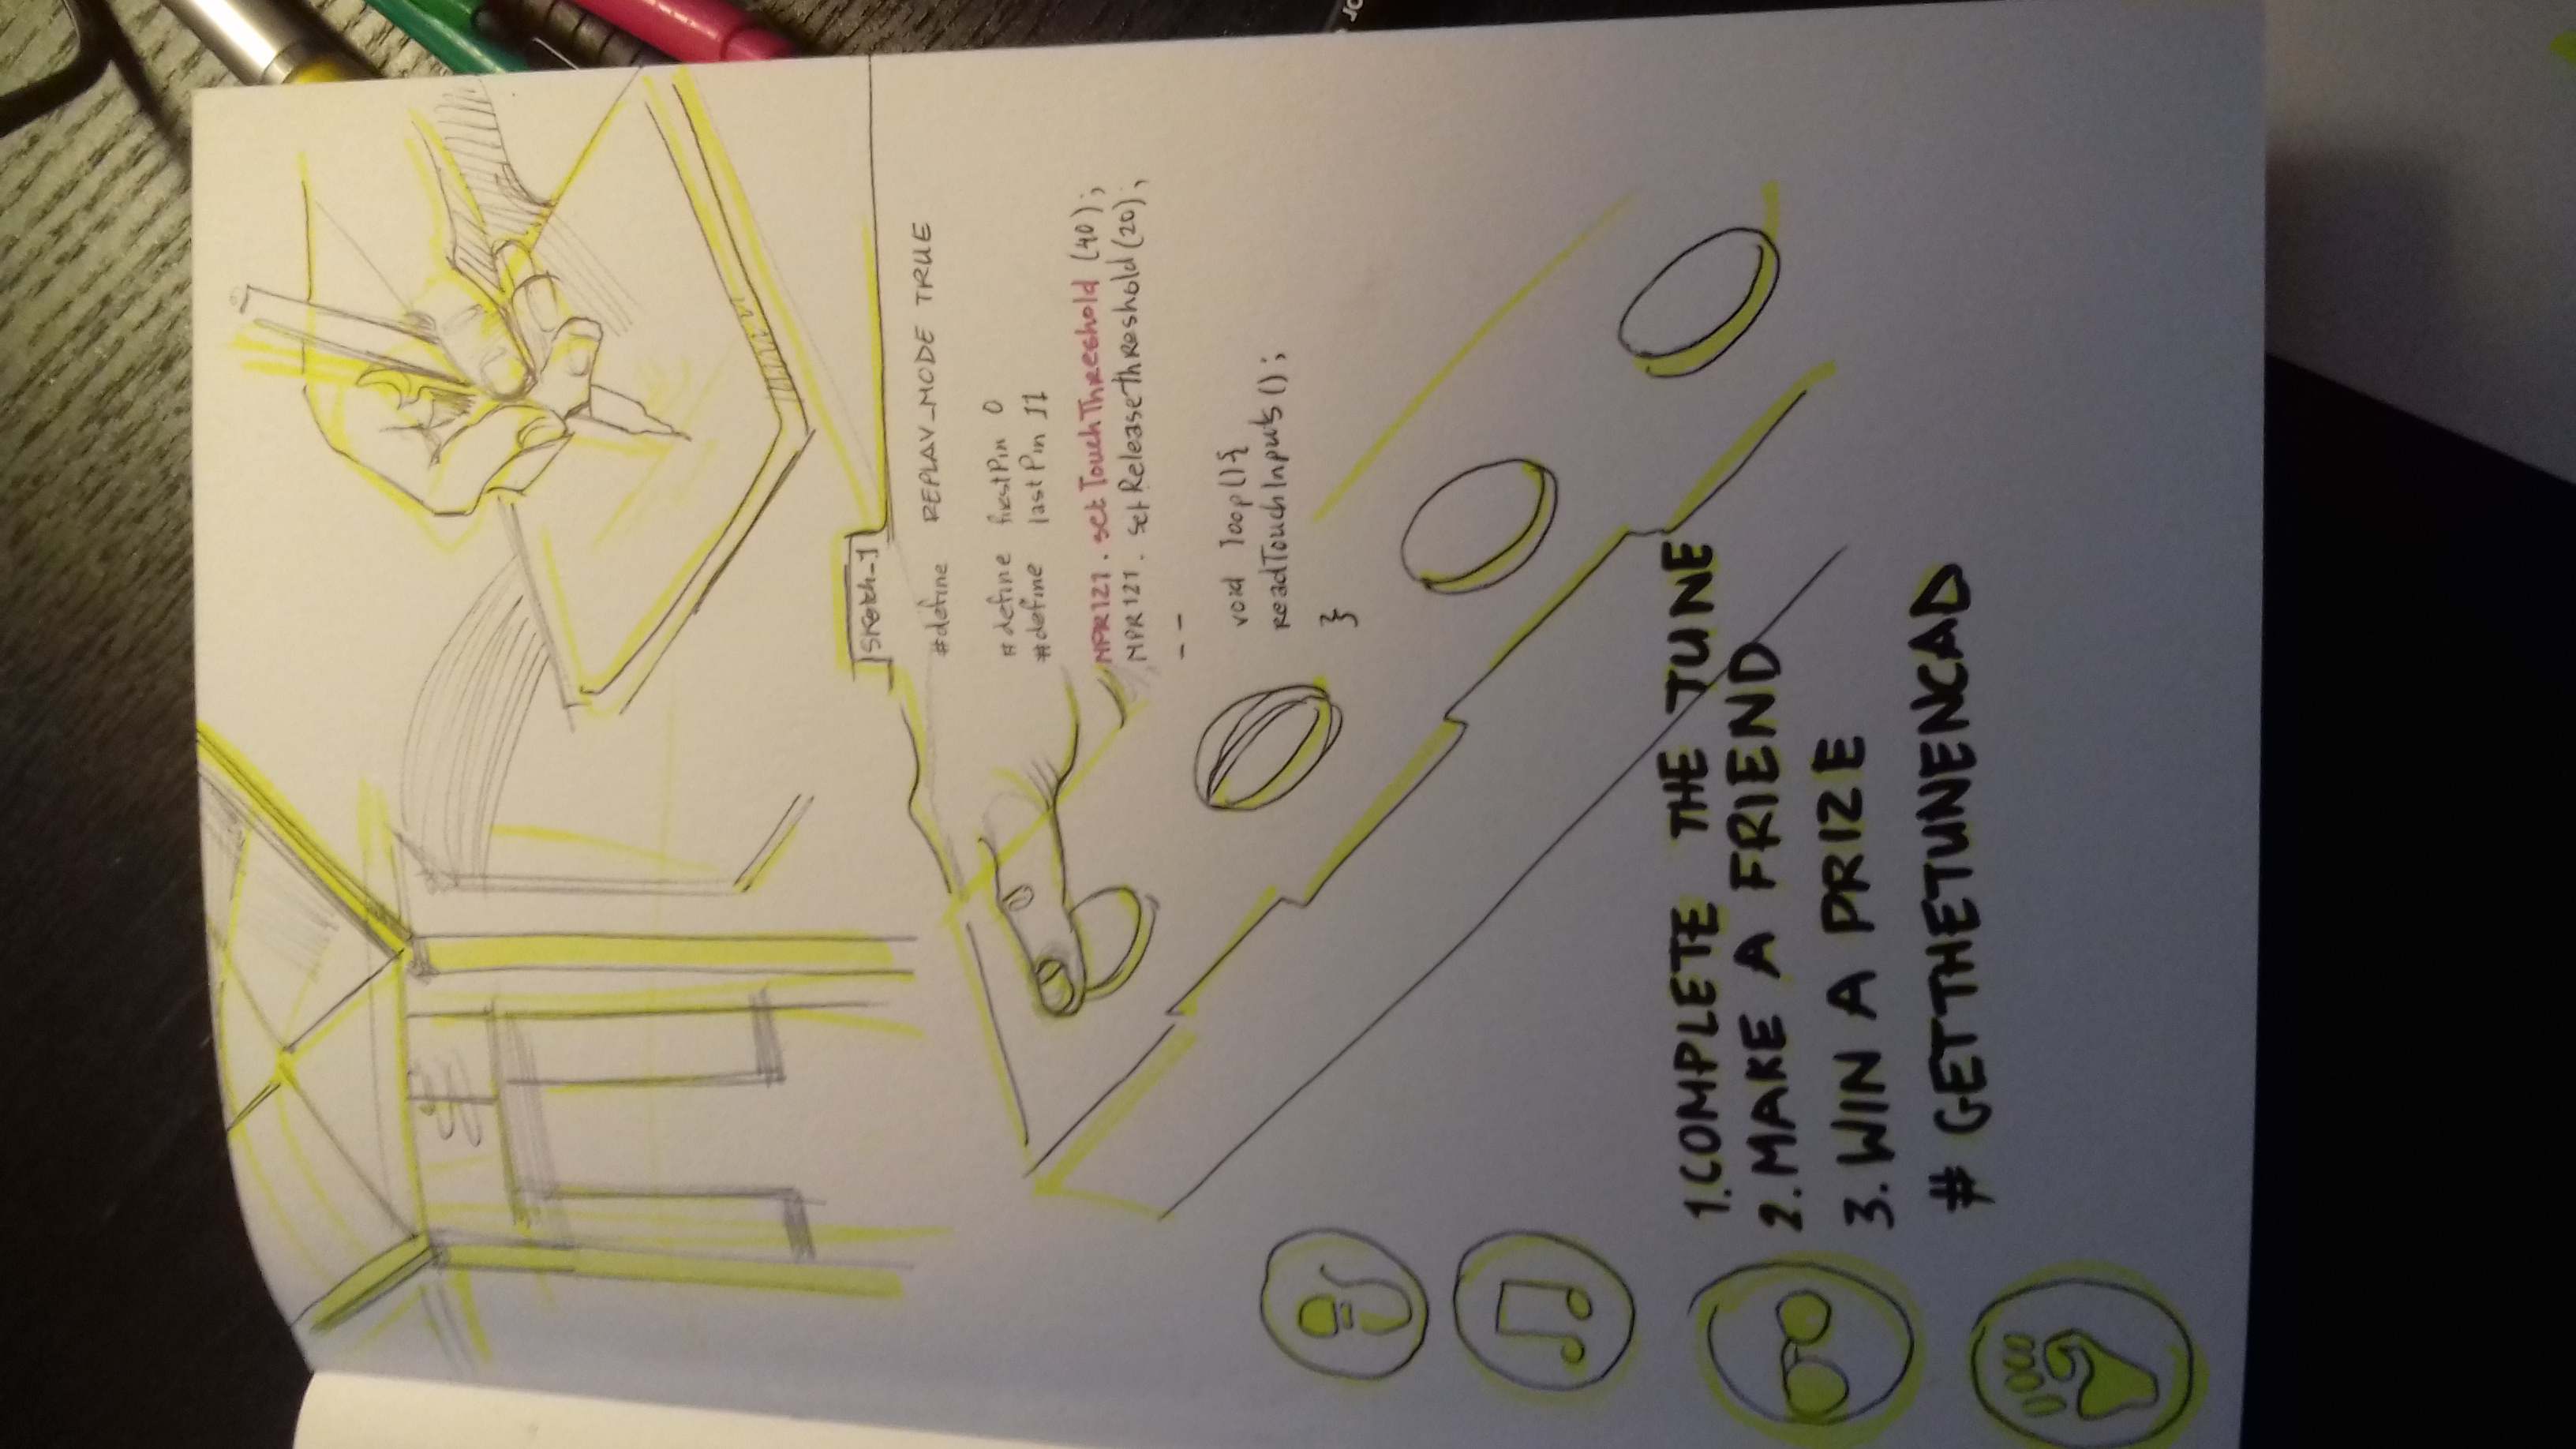 Sketch_1
#define REPLAY_MODE TRUE
#define firstPin 0
#define lastPin 11
MPR121. setTouchThreshold (40);
MPR121. setReleaseThreshold (20);
--
void loop(){
readTouchInputs();
}
1. COMPLETE THE TUNE
2. MAKE A FRIEND
3. WIN A PRIZE
# GETTHETUNENCAD